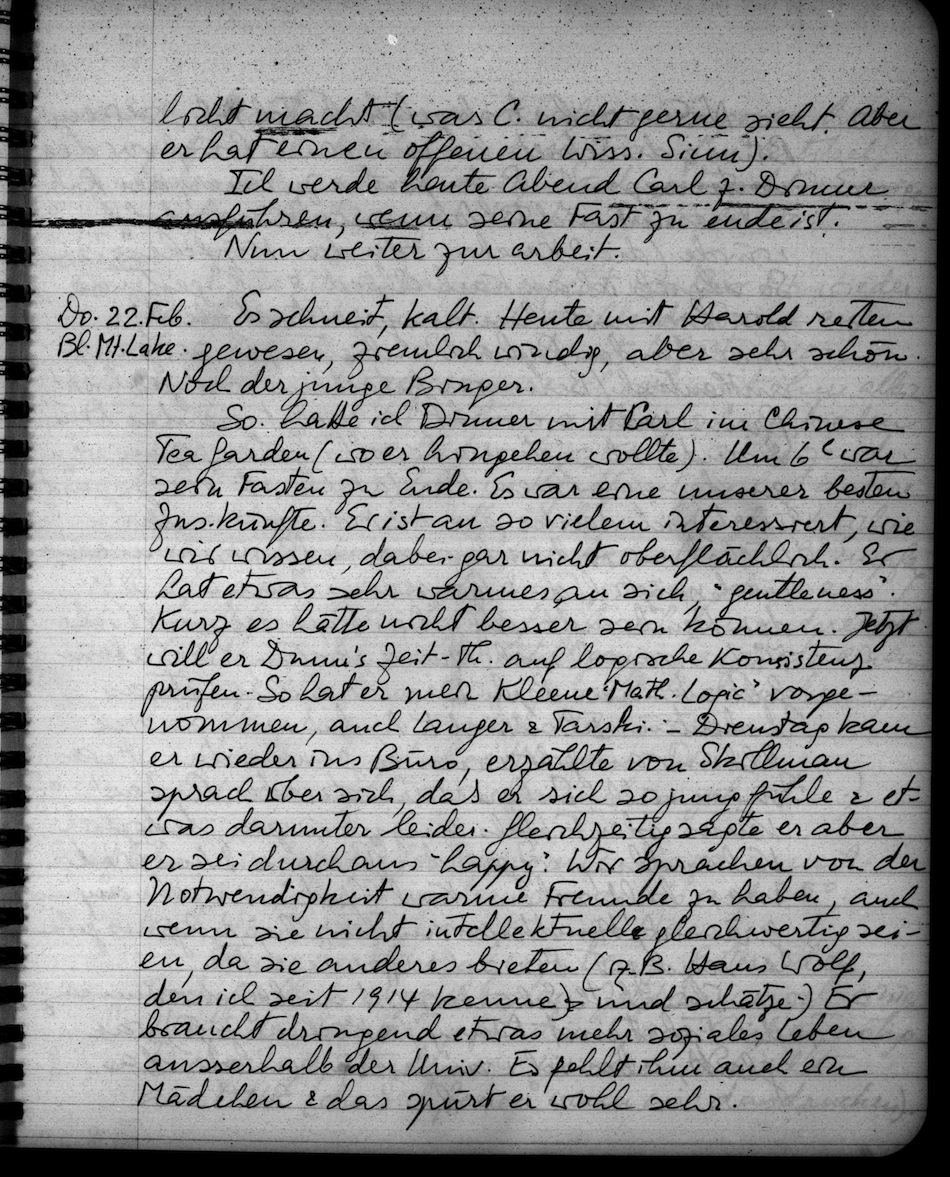 licht macht (was C. nicht gerne sieht. Aber
er hat einen offenen wiss. Sinn).
Ich werde heute Abend Carl z. Dinner
ausführen, wenn seine Fast zu ende ist.
Nun weiter zur arbeit.
Do. 22. Feb. Es schneit, kalt. Heute mit Harold reiten
Bl. Mt. Lake. gewesen, ziemlich windig, aber sehr schön.
Noch der junge Binger.
So. hatte ich Dinner mit Carl im Chinese
Tea Garden (wo er hingehen wollte). Um 6 war
sein Fasten zu Ende. Es war eine unserer besten
Zus.künfte. Er ist an so vielem interessiert, wie
wir wissen, dabei gar nicht oberflächlich. Er
hat etwas sehr warmes an sich, "gentleness".
Kurz es hätte nicht besser sein können. Jetzt
will er Dunn's Zeit-Th. auf logische Konsistenz
prüfen. So hat er mein Kleene "Math. Logic" vorge-
nommen, auch Langer & Tarski. – Dienstag kam
er wieder ins Büro, erzählte von Skillman
sprach über sich, das er sich so jung fühle & et-
was darunter leide. Gleichzeitig sagte er aber
er sei durchaus "happy". Wir sprachen von der
Notwendigkeit warme Freunde zu haben, auch
wenn sie nicht intellektuelle gleichwertig sei-
en, da sie anderes bieten (z.B. Hans Wolf,
den ich seit 1914 kenne) und schätze.) Er
braucht dringend etwas mehr soziales Leben
ausserhalb der Univ. Es fehlt ihm auch ein
Mädchen & das spürt er wohl sehr.